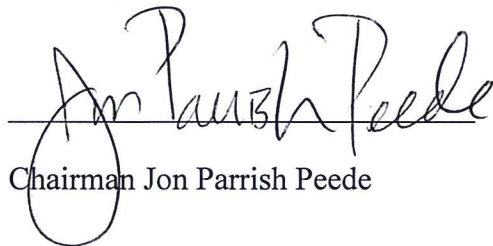 Jon Parrish Peede
Chairman Jon Parrish Peede